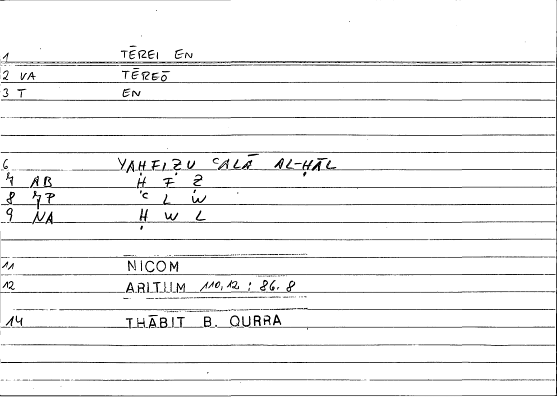 1 TĒREI EN
2 VA TĒREŌ
3 T EN
6 YAḤFIẒU ʿALĀ AL-ḤĀL
7 AB Ḥ F Ẓ
8 7P ʿ L W
9 NA Ḥ W L
11 NICOM
12 ARITHM 110,12 : 86.8
14 THĀBIT B. QURRA